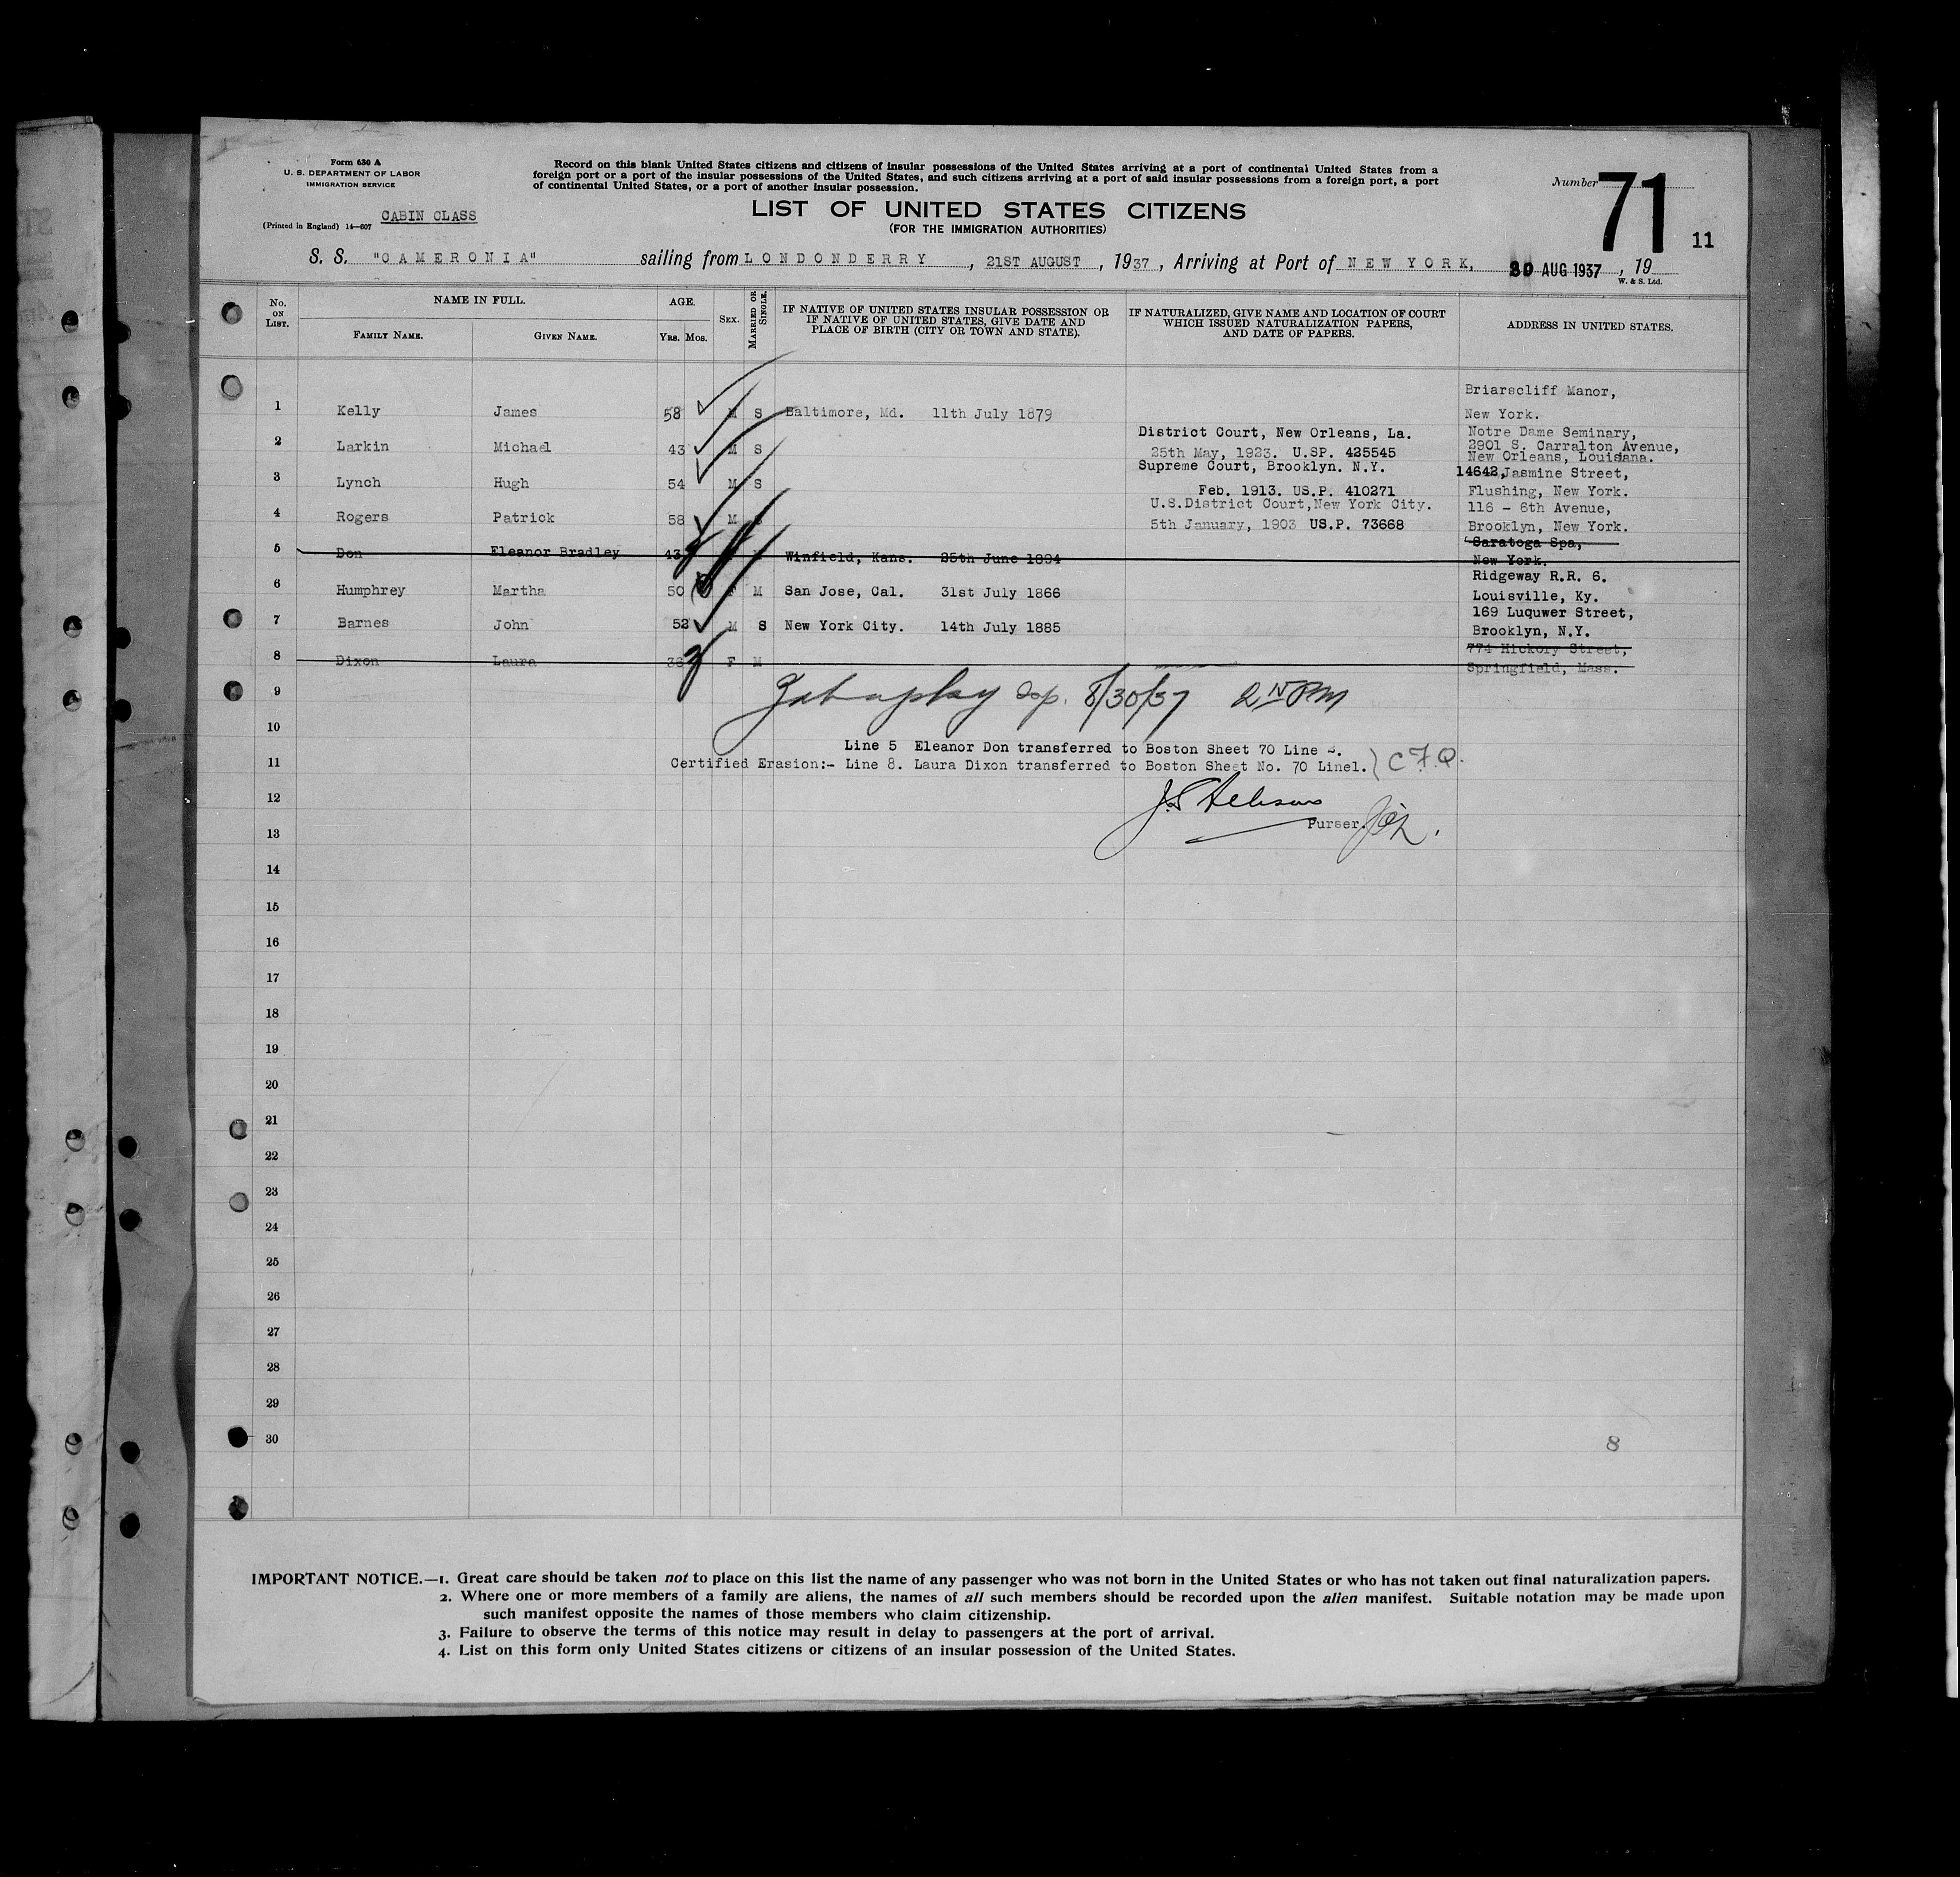 Form 630 A
U. S. DEPARTMENT OF LABOR
IMMIGRATION SERVICE
Record on this blank United States citizens and citizens of insular possessions of the United States arriving at a port of continental United States from a
foreign port or a port of the insular possessions of the United States, and such citizens arriving at a port of said insular possessions from a foreign port, a port
of continental United States, or a port of another insular possession.
Number 71
11
CABIN CLASS
(Printed in England) 14—607
LIST OF UNITED STATES CITIZENS
(FOR THE IMMIGRATION AUTHORITIES)
S. S. "CAMERONIA" sailing from LONDONDERRY, 21ST AUGUST, 1937, Arriving at Port of NEW YORK, 30 AUG 1937, 19
W. & S. Ltd.
No. ON LIST. NAME IN FULL. AGE. SEX. MARRIED OR SINGLE. IF NATIVE OF UNITED STATES INSULAR POSSESSION OR IF NATIVE OF UNITED STATES, GIVE DATE AND PLACE OF BIRTH (CITY OR TOWN AND STATE). IF NATURALIZED, GIVE NAME AND LOCATION OF COURT WHICH ISSUED NATURALIZATION PAPERS, AND DATE OF PAPERS. ADDRESS IN UNITED STATES.
FAMILY NAME. GIVEN NAME. YRS. MOS.
1 Kelly James 58 M S Baltimore, Md. 11th July 1879 Briarscliff Manor, New York.
2 Larkin Michael 43 M S District Court, New Orleans, La. 25th May, 1923. U.SP. 425545 Notre Dame Seminary, 2901 S. Carralton Avenue, New Orleans, Louisiana.
3 Lynch Hugh 54 M S Supreme Court, Brooklyn. N.Y. Feb. 1913. US.P. 410271 14642, Jasmine Street, Flushing, New York.
4 Rogers Patrick 58 M U.S.District Court, New York City. 5th January, 1903 US.P. 73668 116 - 6th Avenue, Brooklyn, New York.
5 Don Eleanor Bradley 43 Winfield, Kans. 25th June 1894 Saratoga Spa, New York.
6 Humphrey Martha 50 F M San Jose, Cal. 31st July 1866 Ridgeway R.R. 6. Louisville, Ky.
7 Barnes John 52 M S New York City. 14th July 1885 169 Luquwer Street, Brooklyn, N.Y.
8 Dixon Laura F M 774 Hickory Street, Springfield, Mass.
9 8/30/37 2 PM
10 Line 5 Eleanor Don transferred to Boston Sheet 70 Line
11 Certified Erasion:- Line 8. Laura Dixon transferred to Boston Sheet No. 70 Line1. C.F.Q.
12
13 Purser.
14
15
16
17
18
19
20
21
22
23
24
25
26
27
28
29
30 8
IMPORTANT NOTICE.—1. Great care should be taken not to place on this list the name of any passenger who was not born in the United States or who has not taken out final naturalization papers.
2. Where one or more members of a family are aliens, the names of all such members should be recorded upon the alien manifest. Suitable notation may be made upon
such manifest opposite the names of those members who claim citizenship.
3. Failure to observe the terms of this notice may result in delay to passengers at the port of arrival.
4. List on this form only United States citizens or citizens of an insular possession of the United States.